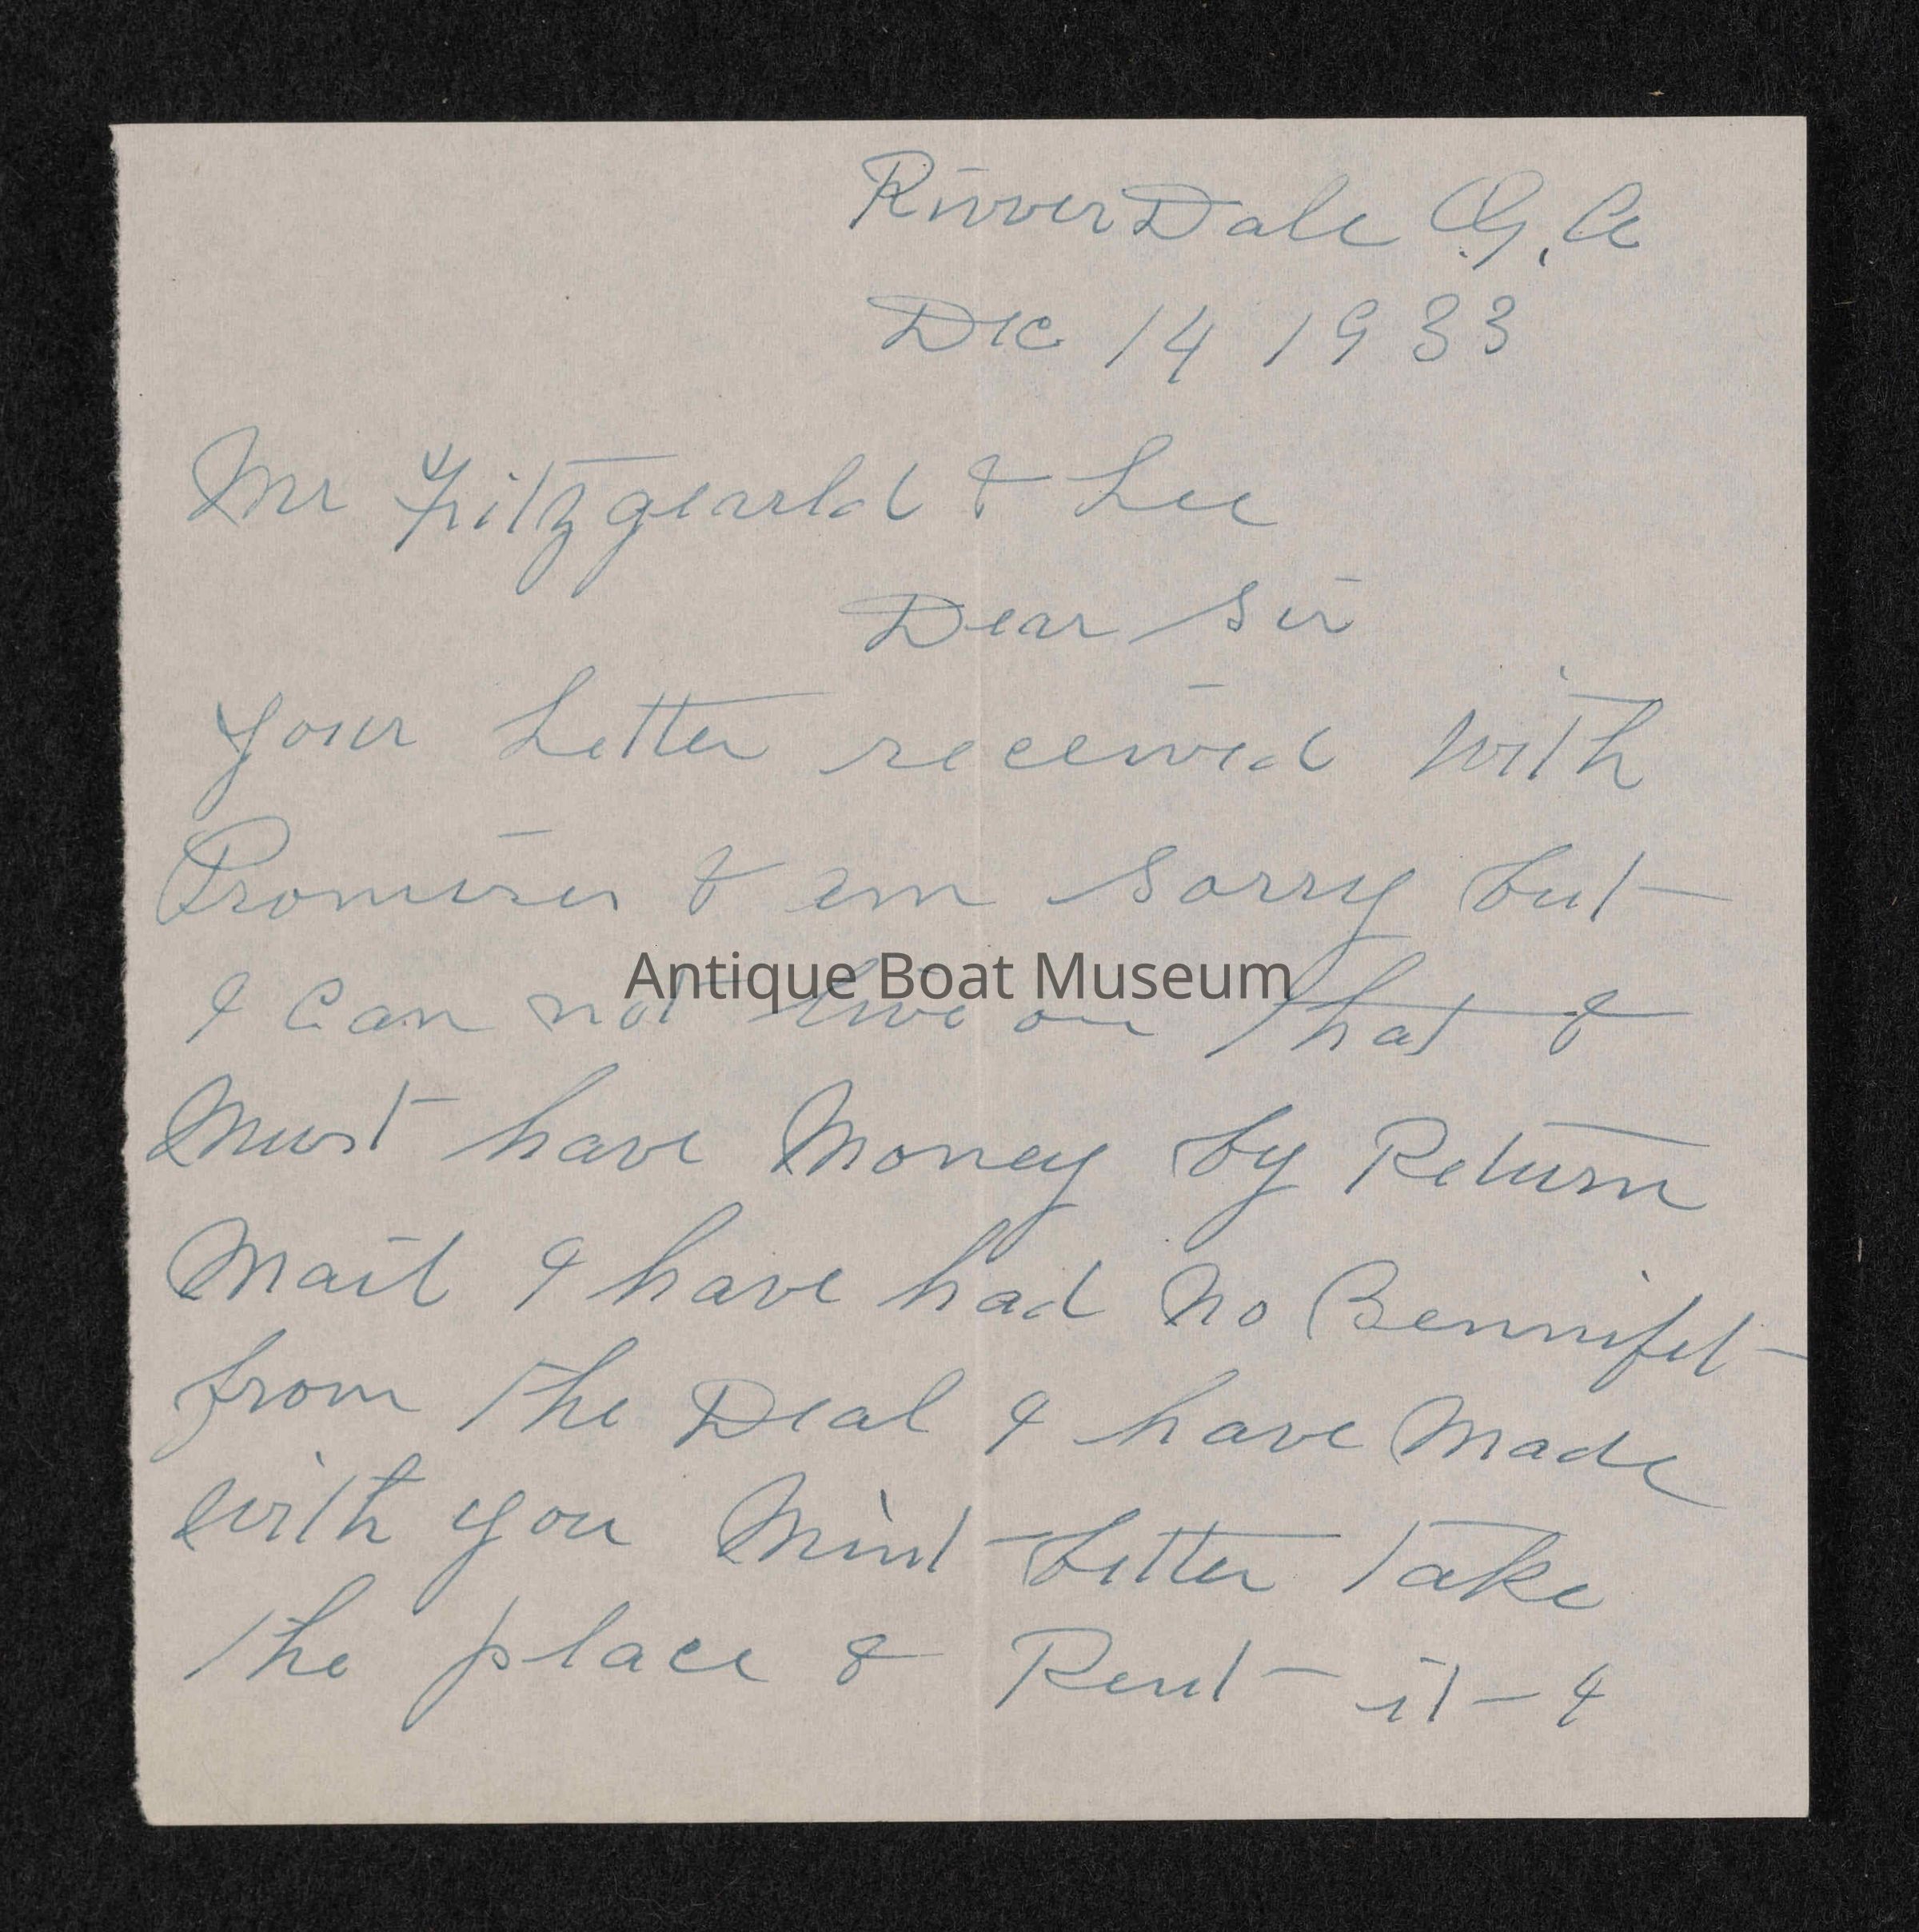 RiverDale G.A
Dec 14 1933
Mr Fitzgearld & Lee
Dear Sir
your Letter received with
Promises & am sorry but
Antique Boat Museum
I Can not live on that &
Must have Money by Return
Mail I have had No Bennifet
from the Deal I have Made
with you Mint better take
the place & Rent it &